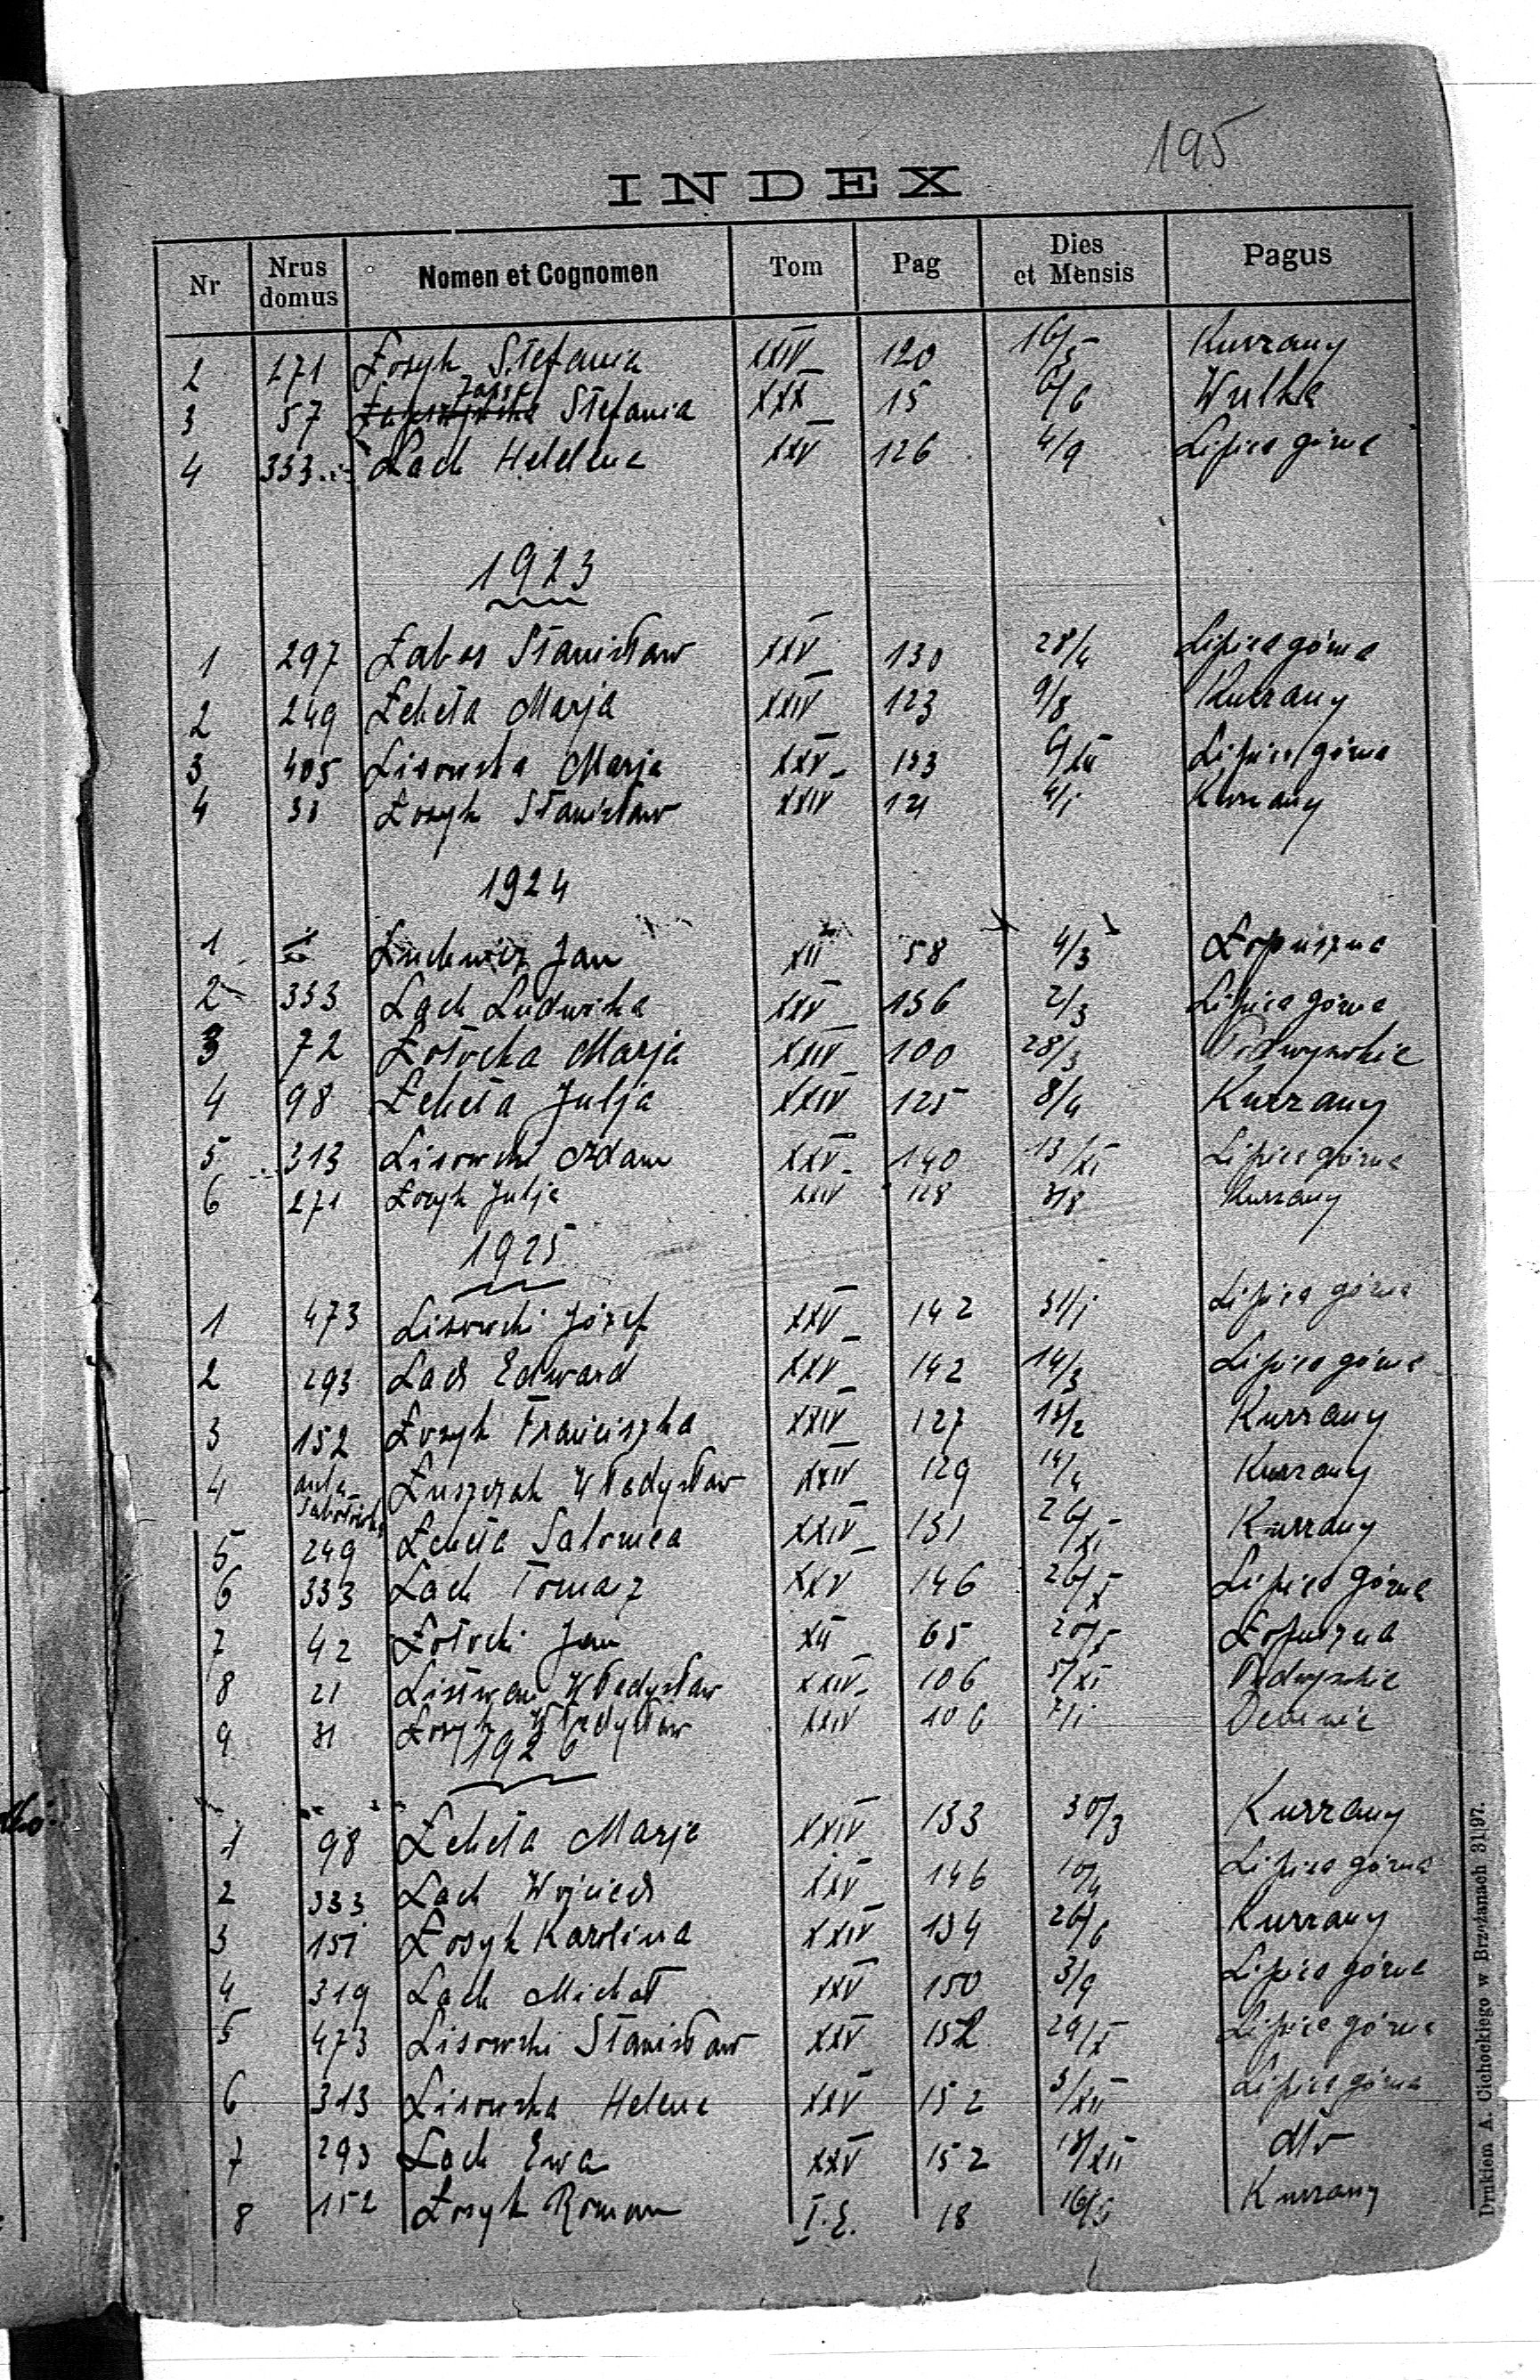 195
INDEX
Nr Nrus domus Nomen et Cognomen Tom Pag Dies et Mensis Pagus
2 271 Łosyk Stefania XXIV 120 16/5 Kurzany
3 57 Stefania XXX 15 6/6 Wulka
4 333 Lach Helelena XXV 126 4/9 Lipica górna
1923
1 297 Łabos Stanisław XXV 130 28/4 Lipica górna
2 249 Łeheta Marja XXIV 123 9/8 Kurzany
3 405 Lisowska Marja XXV 133 Lipica górna
4 Łosyk Stanisław XXIV 121 4/i Kurzany
1924
1 Jan XII 58 4/3 Łopuszna
2 333 Lach Ludwika XXV 136 2/3 Lipica górna
3 72 Łotocka Marja XXIV 100 28/3 Podwysokie
4 98 Łeheta Julja XXIV 125 8/4 Kurzany
5 313 Lisowski Adam XXV 140 13/XI Lipica górna
6 271 Łosyk Julja XXIV 128 3/8 Kurzany
1925
1 473 Lisowski Józef XXV 142 31/i Lipica górna
2 293 Lach Edward XXV 142 14/3 Lipica górna
3 152 Łosyk Franciszka XXIV 127 18/2 Kurzany
4 Łuszczak Władysław XXIV 129 14/4 Kurzany
5 249 Łeheta Salomea XXIV 131 26/XI Kurzany
6 333 Lach Tomasz XXV 146 26/X Lipica górna
7 42 Łotocki Jan XII 65 20/5 Łopuszna
8 21 Listwan Władysław XXIV 106 5/XI Podwysokie
9 31 Łosyk Władysław XXIV 106 7/i
1926
1 98 Łeheta Marja XXIV 133 30/3 Kurzany
2 333 Lach Wojciech XXV 146 10/4 Lipica górna
3 151 Łosyk Karolina XXIV 134 26/6 Kurzany
4 319 Lach Michał XXV 150 3/9 Lipica górna
5 473 Lisowski Stanisław XXV 152 29/X Lipica górna
6 313 Lisowska Helena XXV 152 3/XII Lipica górna
7 293 Lach Ewa XXV 152 18/XII dto
8 152 Łosyk Roman I.E. 18 16/5 Kurzany
Drukiem A. Cichockiego w Brzeżanach 31|97.